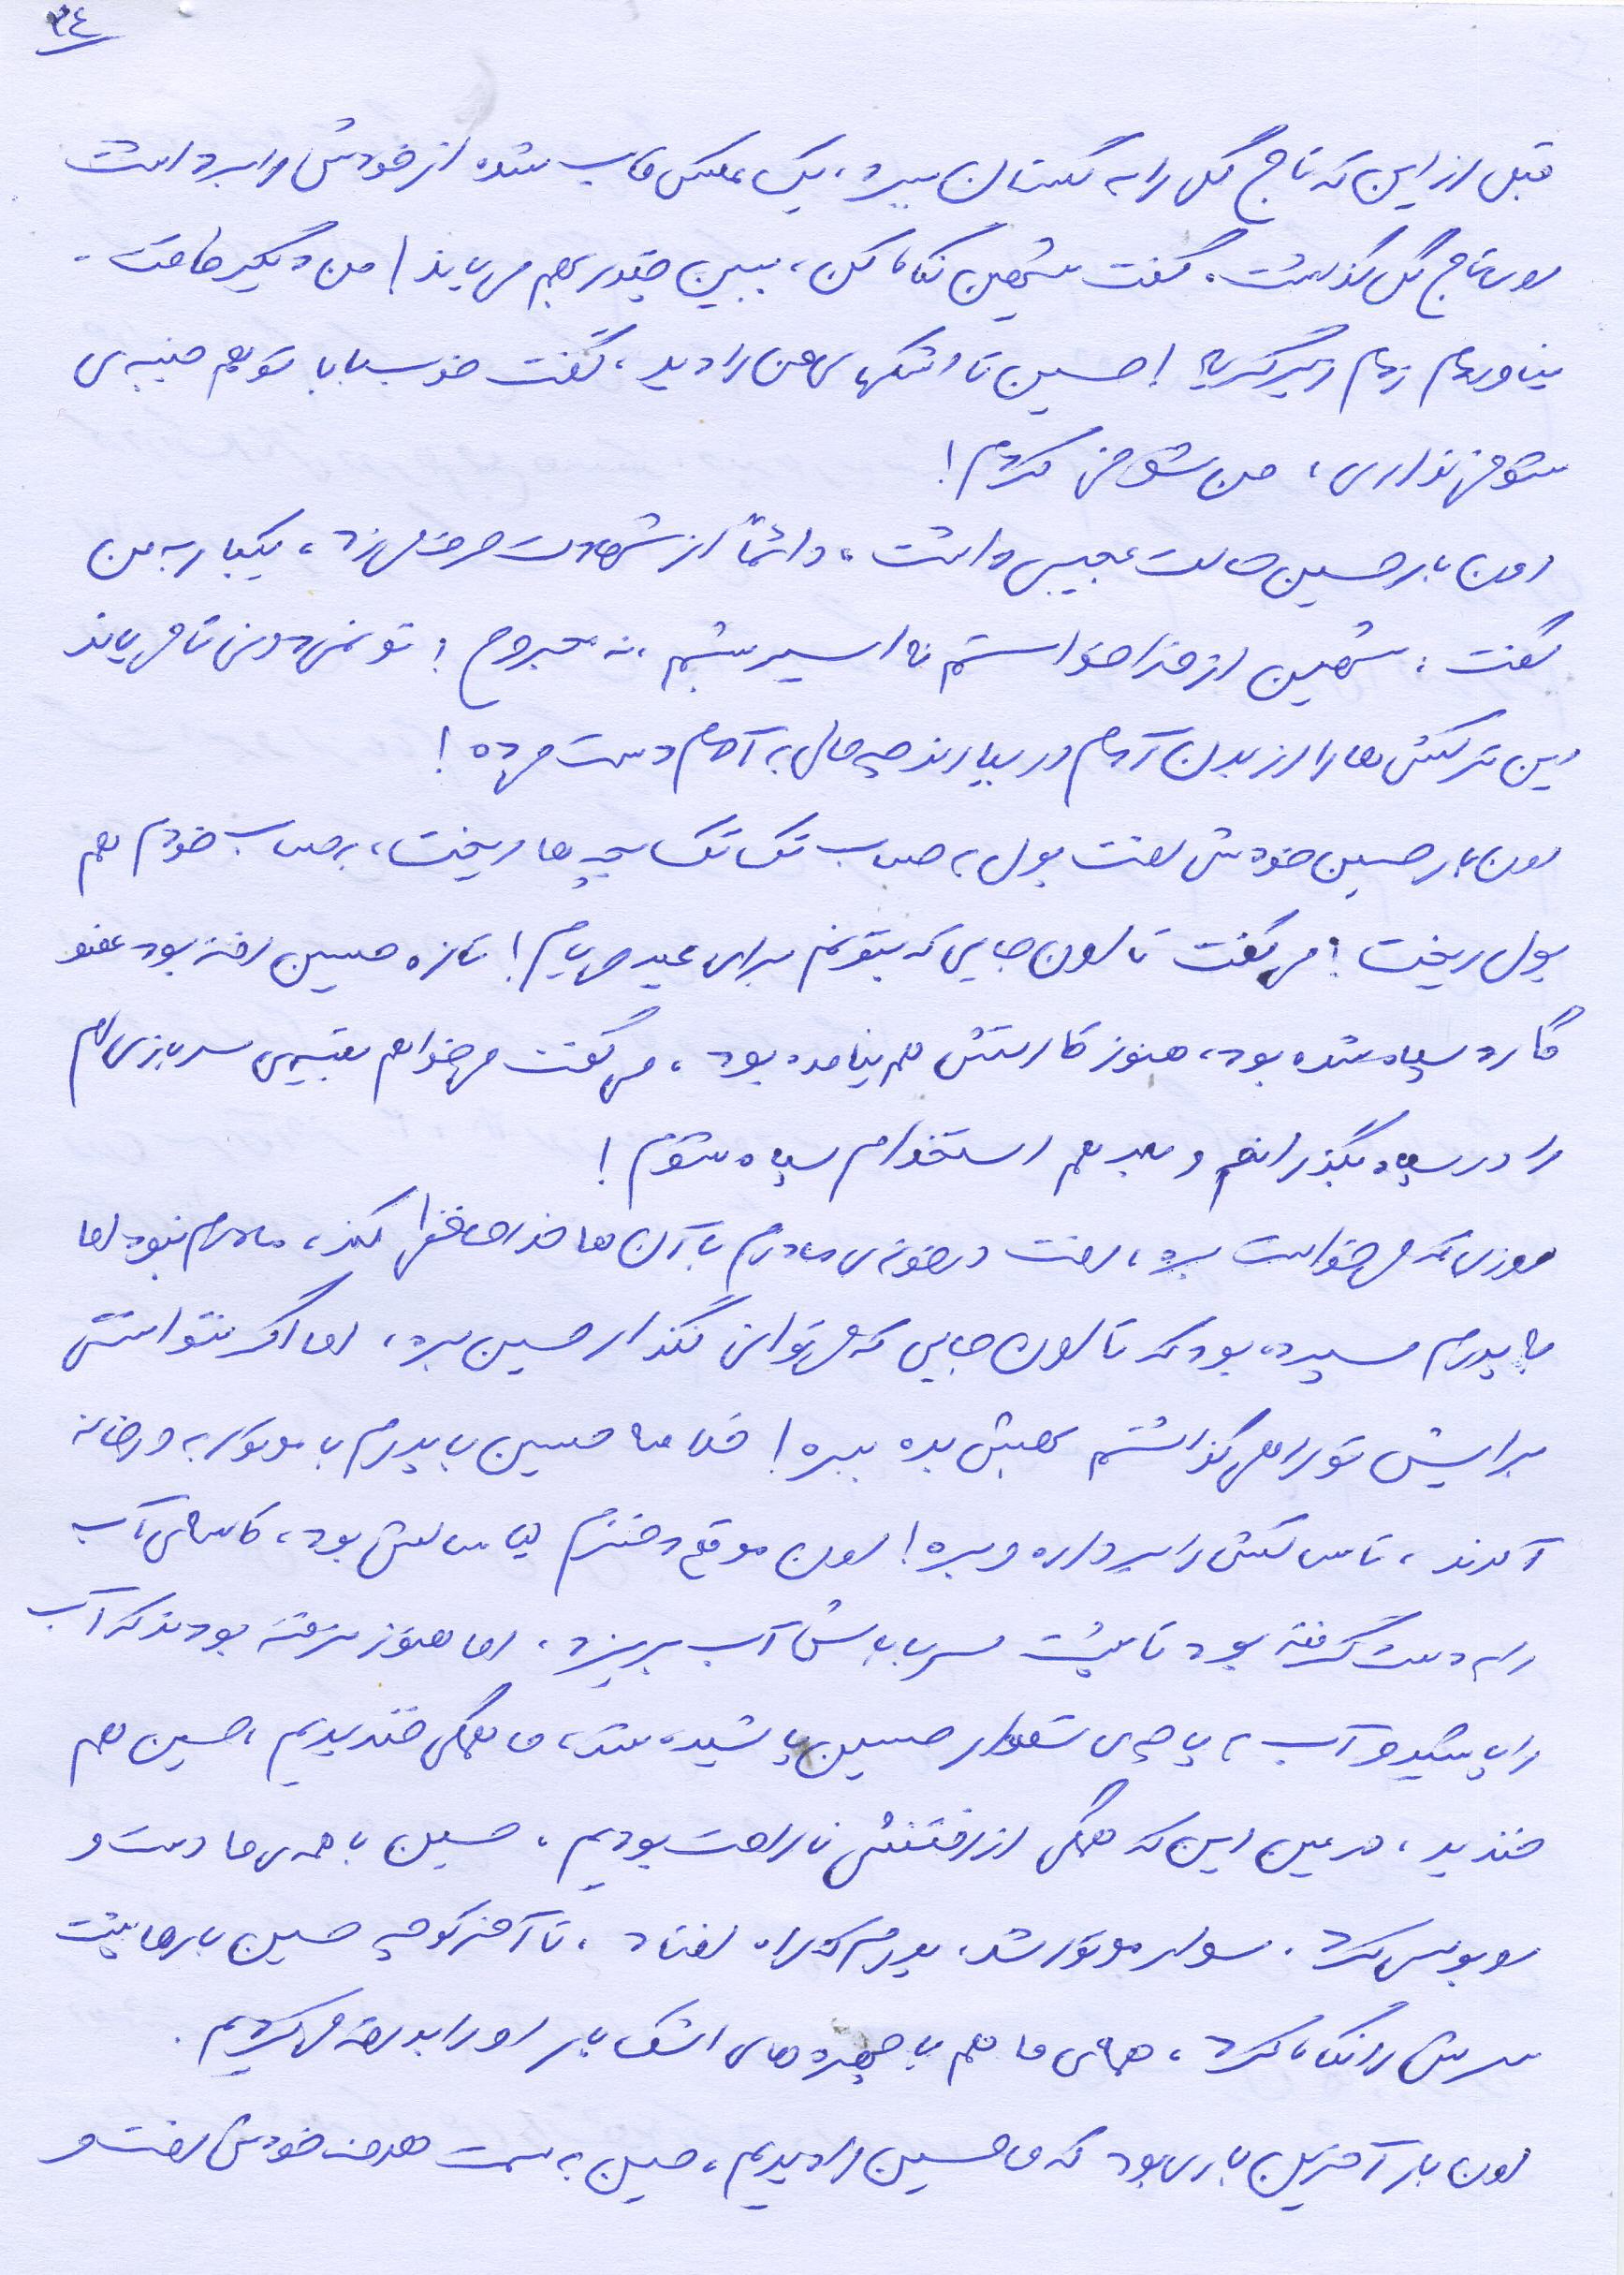 ٣٤
قبل از این که تاج گل را به گلستان ببرد، یک عکس قاب شده از خودش را برداشت
روی تاج گل گذاشت. گفت شهین نگاه کن، ببین چقدر بهم میاید! من دیگر طاقت
نیاوردم زدم زیر گریه! حسین تا اشکهای من را دید، گفت خوب بابا تو هم جنبه‌ی
شوخی نداری، من شوخی کردم!
اون بار حسین حالت عجیبی داشت، دائماً از شهادت حرف می‌زد، یکبار به من
گفت: شهین از خدا خواستم نه اسیر بشم، نه مجروح! تو نمی‌دونی تا می‌یاند
این ترکش‌ها را از بدن آدم در بیارند چه حالی به آدم دست می‌ده!
اون بار حسین خودش رفت پول به حساب تک تک بچه‌ها ریخت، به حساب خودم هم
پول ریخت! می‌گفت تا اون جایی که بتونم برای عید می‌یام! تازه حسین رفته بود عضو
گارد سپاه شده بود، هنوز کارتش هم نیامده بود، می‌گفت می‌خواهم بقیه‌ی سربازی‌ام
را در سپاه بگذرانم و بعد هم استخدام سپاه شوم!
روزی که می‌خواست برد، رفت در خونه‌ی مادرم با آن‌ها خداحافظی کند، مادرم نبود اما
به پدرم سپرده بود که تا اون جایی که می‌توانی نگذار حسین برد، اما اگر نتوانستی
برایش تو راهی گذاشتم بهش بده ببره! خلاصه حسین با پدرم با موتور به در خانه
آمدند، تا ساکش را برداره و بره! اون موقع دخترم یک سالش بود، کاسه‌ی آب
را به دست گرفته بود تا پشت سر باباش آب بریزد، اما هنوز نرفته بودند که آب
را پاشید و آب به پاچه‌ی شلوار حسین پاشیده شد، ما همگی خندیدیم، حسین هم
خندید، در عین این که همگی از رفتنش ناراحت بودیم، حسین با همه‌ی ما دست و
روبوسی کرد. سوار موتور شد، پدرم که راه افتاد، تا آخر کوچه حسین بارها پشت
سرش را نگاه کرد، همه‌ی ما هم با چهره‌های اشک بار او را بدرقه می‌کردیم.
اون بار آخرین باری بود که ما حسین را دیدیم، حسین به سمت هدف خودش رفت و